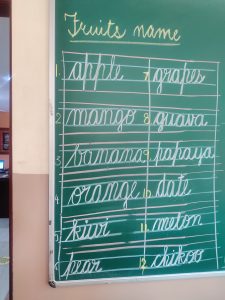 Fruits name
1. apple 7. grapes
2. mango 8. guava
3. banana 9. papaya
4. orange 10. date
5. kiwi 11. melon
6. pear 12. chikoo